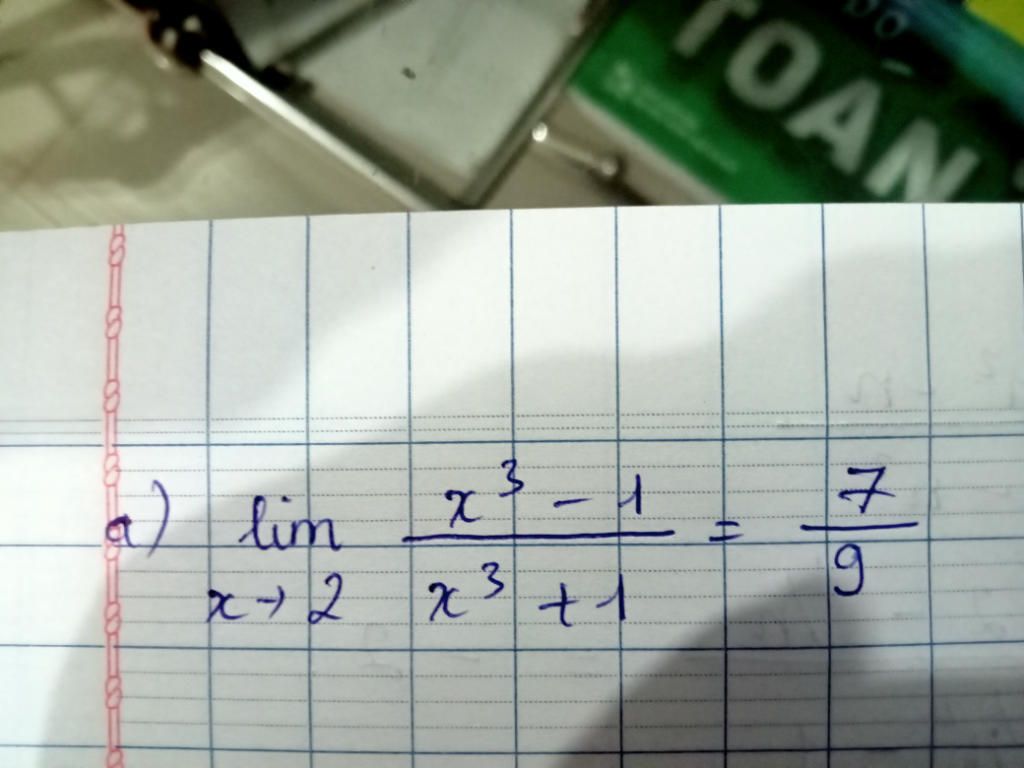 TOÁN
a) lim x→2 (x³ - 1)/(x³ + 1) = 7/9